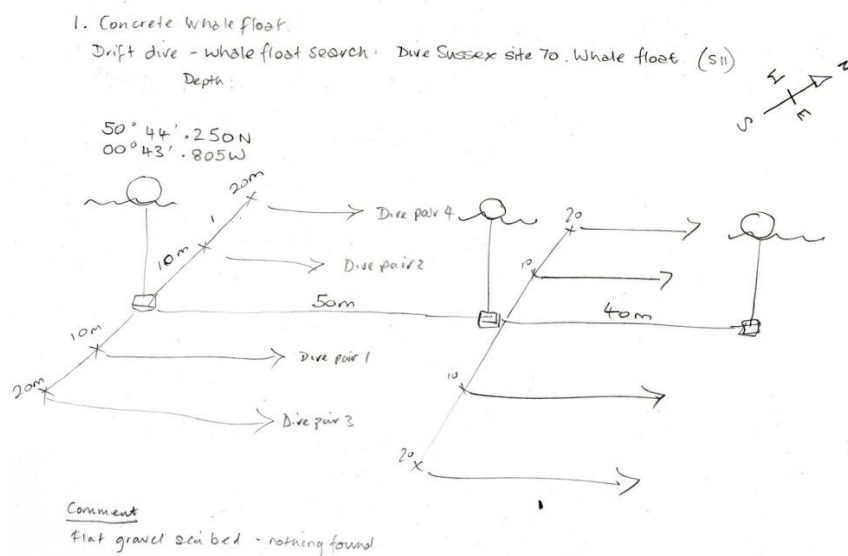 1. Concrete Whale float.
Drift dive - Whale float search. Dive Sussex site 70. Whale float (S11)
Depth:
N
W
E
S
50° 44' .250N
00° 43' .805W
20m
Dive pair 4
10m
1
Dive pair 2
50m
10m
Dive pair 1
20m
Dive pair 3
20
10
40m
10
20
Comment
Flat gravel sea bed - nothing found